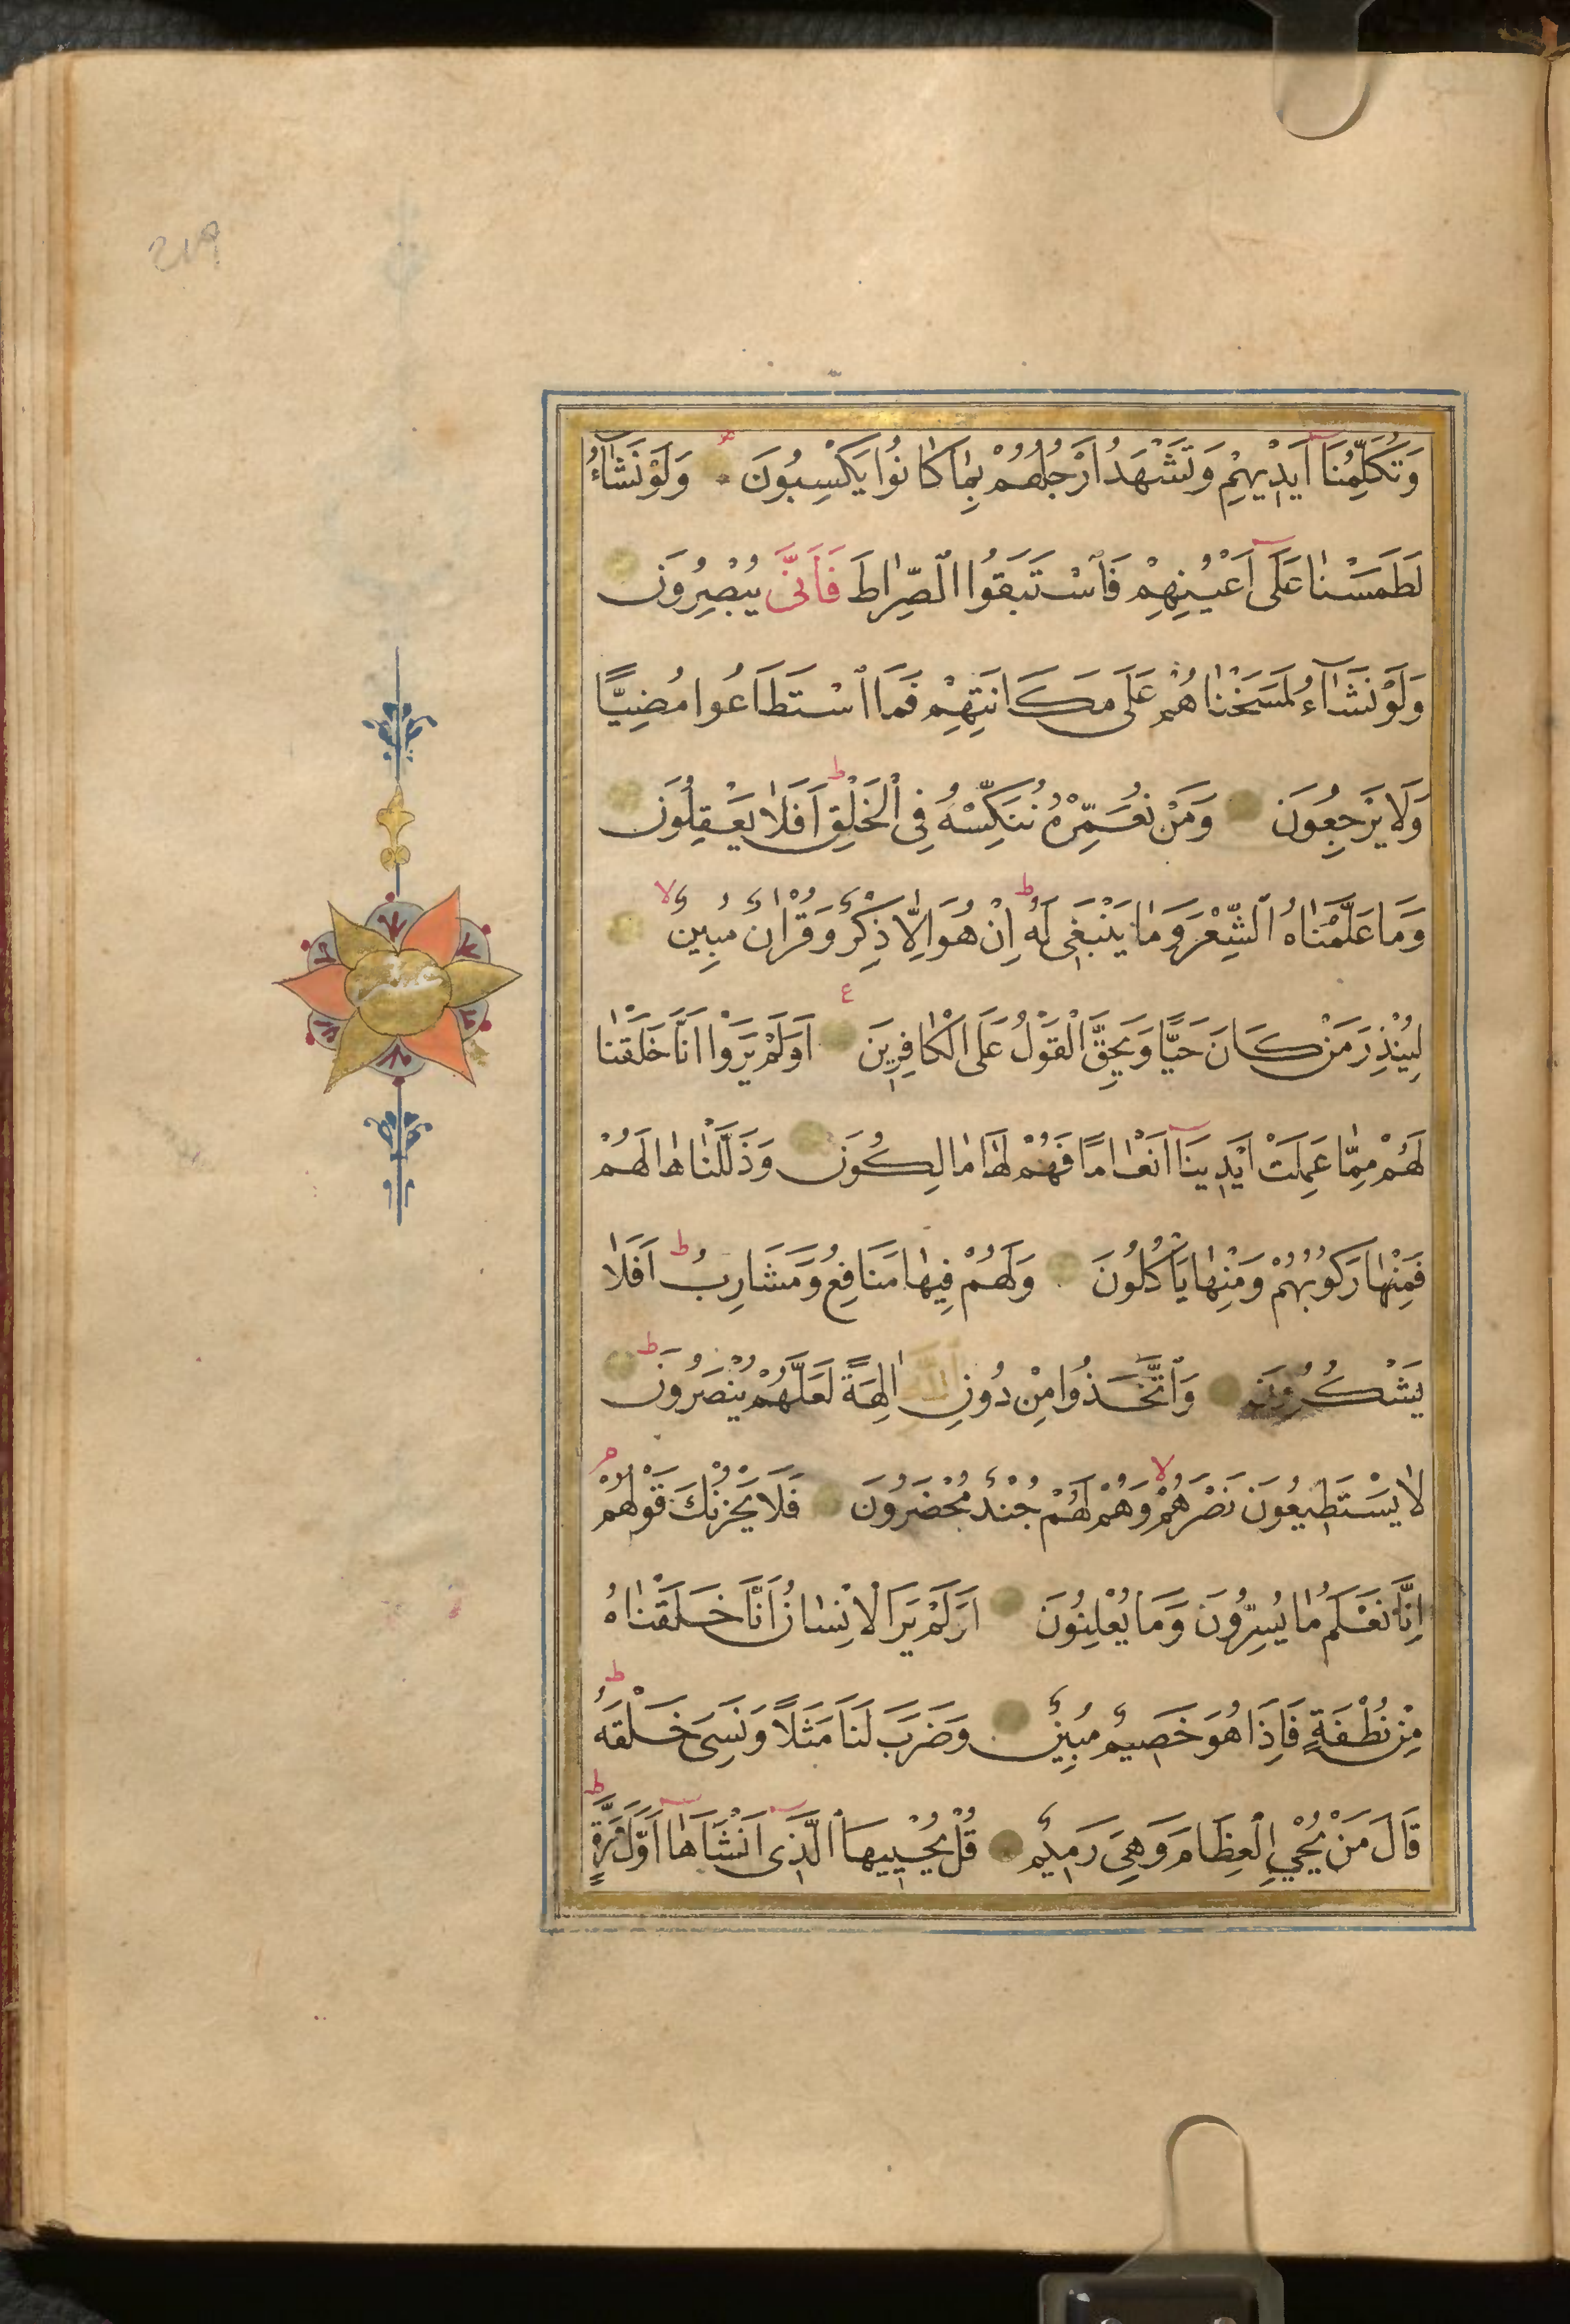 وَتُكَلِّمُنَا اَيْدِيهِمْ وَتَشْهَدُ اَرْجُلُهُمْ بِمَا كَانُوا يَكْسِبُونَ وَلَوْ نَشَآءُ
لَطَمَسْنَا عَلَى اَعْيُنِهِمْ فَاسْتَبَقُوا الصِّرَاطَ فَاَنَّى يُبْصِرُونَ
وَلَوْ نَشَآءُ لَمَسَخْنَاهُمْ عَلَى مَكَانَتِهِمْ فَمَا اسْتَطَاعُوا مُضِيًّا
وَلَا يَرْجِعُونَ وَمَنْ نُعَمِّرْهُ نُنَكِّسْهُ فِي الْخَلْقِ ط اَفَلَا يَعْقِلُونَ
وَمَا عَلَّمْنَاهُ الشِّعْرَ وَمَا يَنْبَغِي لَهُ ط اِنْ هُوَ اِلَّا ذِكْرٌ وَقُرْاٰنٌ مُبِينٌ لا
لِيُنْذِرَ مَنْ كَانَ حَيًّا وَيَحِقَّ الْقَوْلُ عَلَى الْكَافِرِينَ ع اَوَلَمْ يَرَوْا اَنَّا خَلَقْنَا
لَهُمْ مِمَّا عَمِلَتْ اَيْدِينَآ اَنْعَامًا فَهُمْ لَهَا مَالِكُونَ وَذَلَّلْنَاهَا لَهُمْ
فَمِنْهَا رَكُوبُهُمْ وَمِنْهَا يَاْكُلُونَ وَلَهُمْ فِيهَا مَنَافِعُ وَمَشَارِبُ ط اَفَلَا
يَشْكُرُونَ وَاتَّخَذُوا مِنْ دُونِ اللّٰهِ اٰلِهَةً لَعَلَّهُمْ يُنْصَرُونَ ط
لَا يَسْتَطِيعُونَ نَصْرَهُمْ لا وَهُمْ لَهُمْ جُنْدٌ مُحْضَرُونَ فَلَا يَحْزُنْكَ قَوْلُهُمْ م
اِنَّا نَعْلَمُ مَا يُسِرُّونَ وَمَا يُعْلِنُونَ اَوَلَمْ يَرَ الْاِنْسَانُ اَنَّا خَلَقْنَاهُ
مِنْ نُطْفَةٍ فَاِذَا هُوَ خَصِيمٌ مُبِينٌ وَضَرَبَ لَنَا مَثَلًا وَنَسِيَ خَلْقَهُ ط
قَالَ مَنْ يُحْيِ الْعِظَامَ وَهِيَ رَمِيمٌ قُلْ يُحْيِيهَا الَّذِي اَنْشَاَهَا اَوَّلَ مَرَّةٍ ط